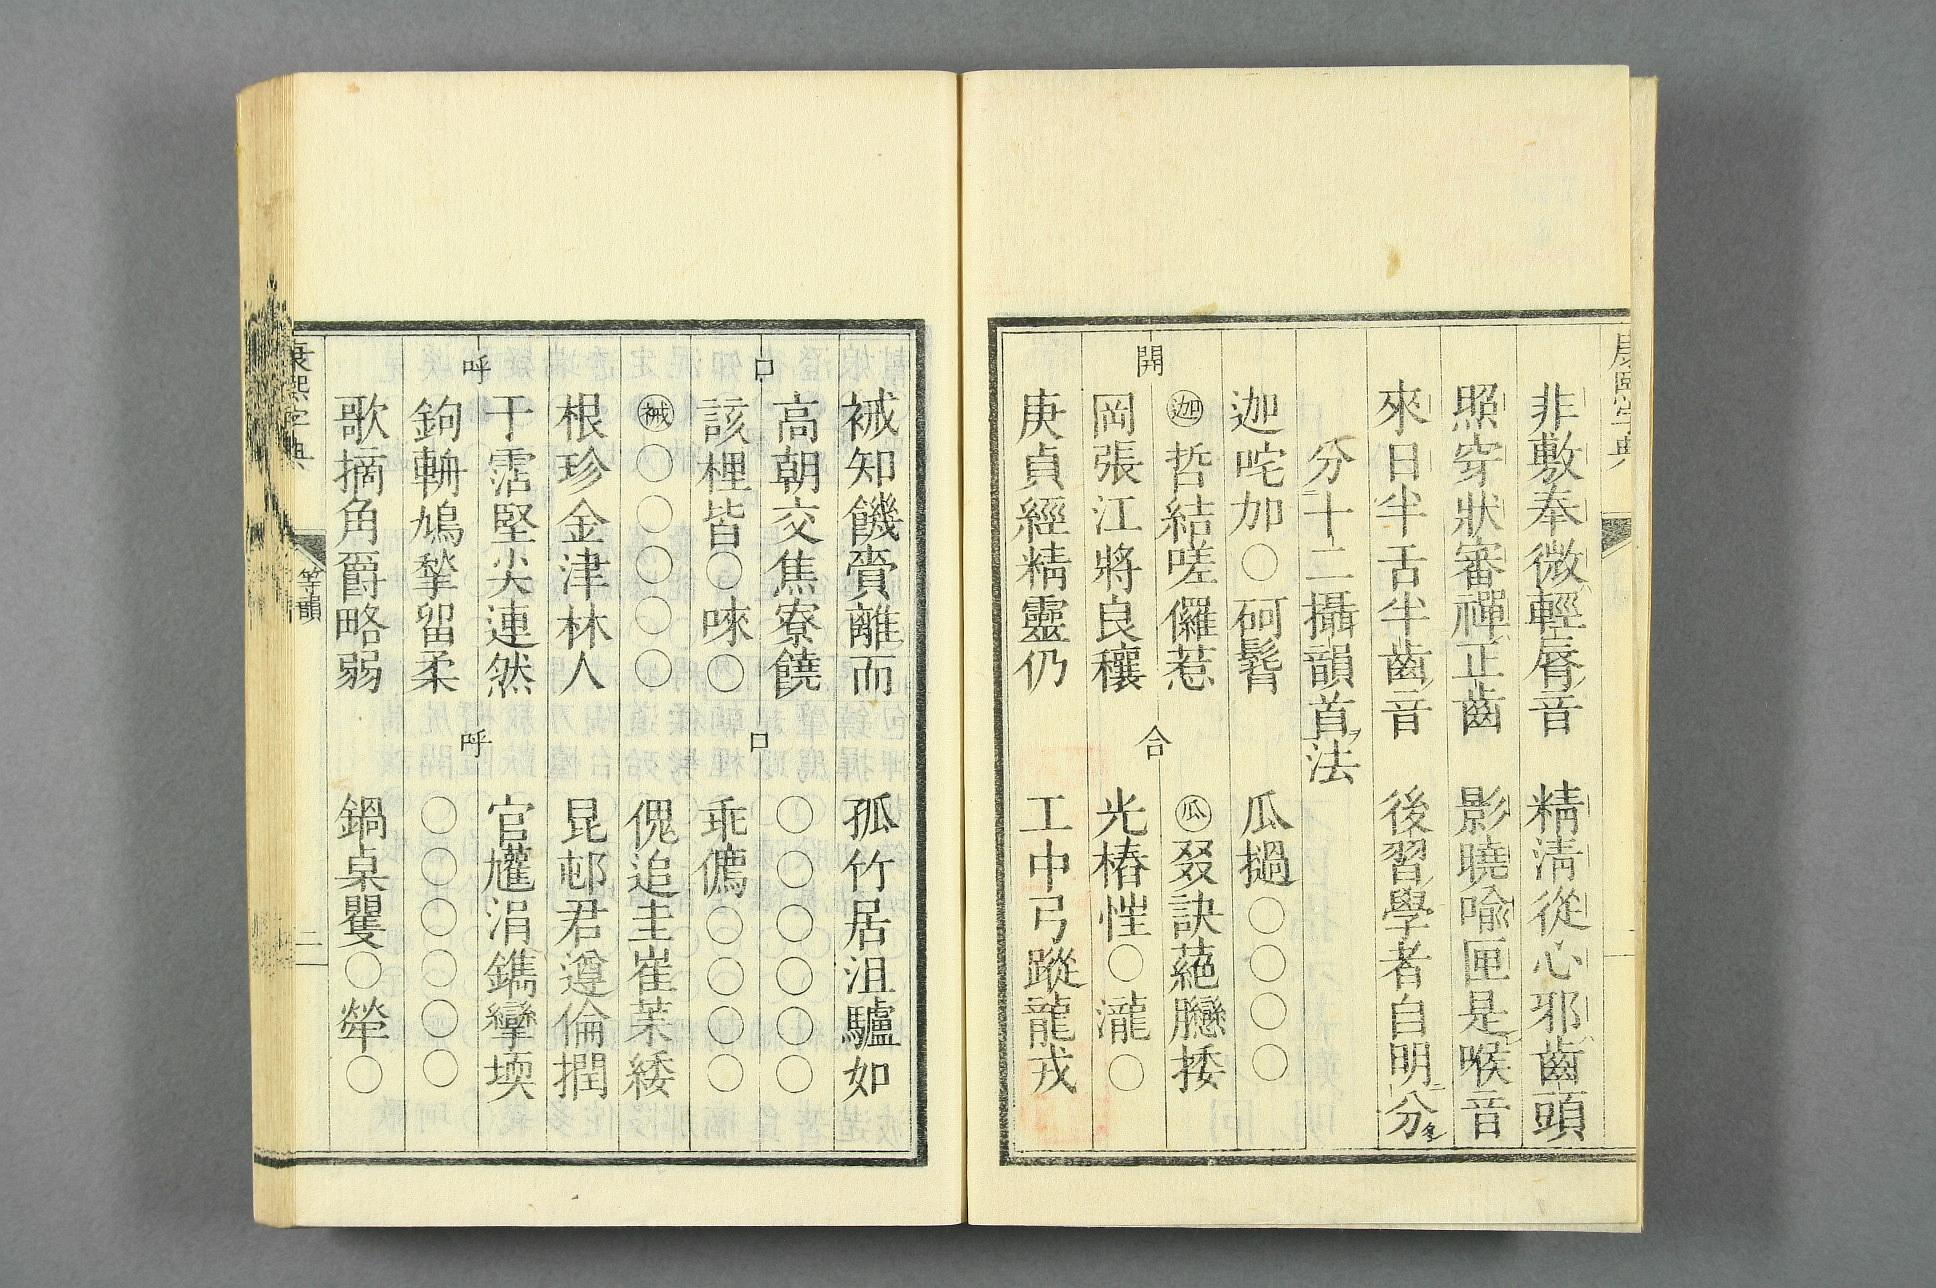 康熙字典
非敷奉微輕唇音　精清從心邪齒頭
照穿狀審禪正齒　影曉喻匣是喉音
來日半舌半齒音　後習學者自明分
分十二攝韻首法
迦咤加○砢髫　瓜撾○○○○
㊀迦哲結嗟儸惹　瓜叕訣蕝臠捼
開　合
岡張江將良穰　光樁恇○瀧○
庚貞經精靈仍　工中弓蹤龍戎
祴知饑賫離而　孤竹居沮驢如
高朝交焦寮饒　○○○○○○
口　口
該梩皆○唻○　乖䈥○○○○
祴○○○○○　傀追圭崔虆緌
根珍金津林人　昆屯君遵倫撋
干霑堅尖連然　官尵涓鐫攣堧
呼　呼
鉤輈鳩揫留柔　○○○○○○
歌摘角爵略弱　鍋桌矍○犖○
康熙字典
等韻
二